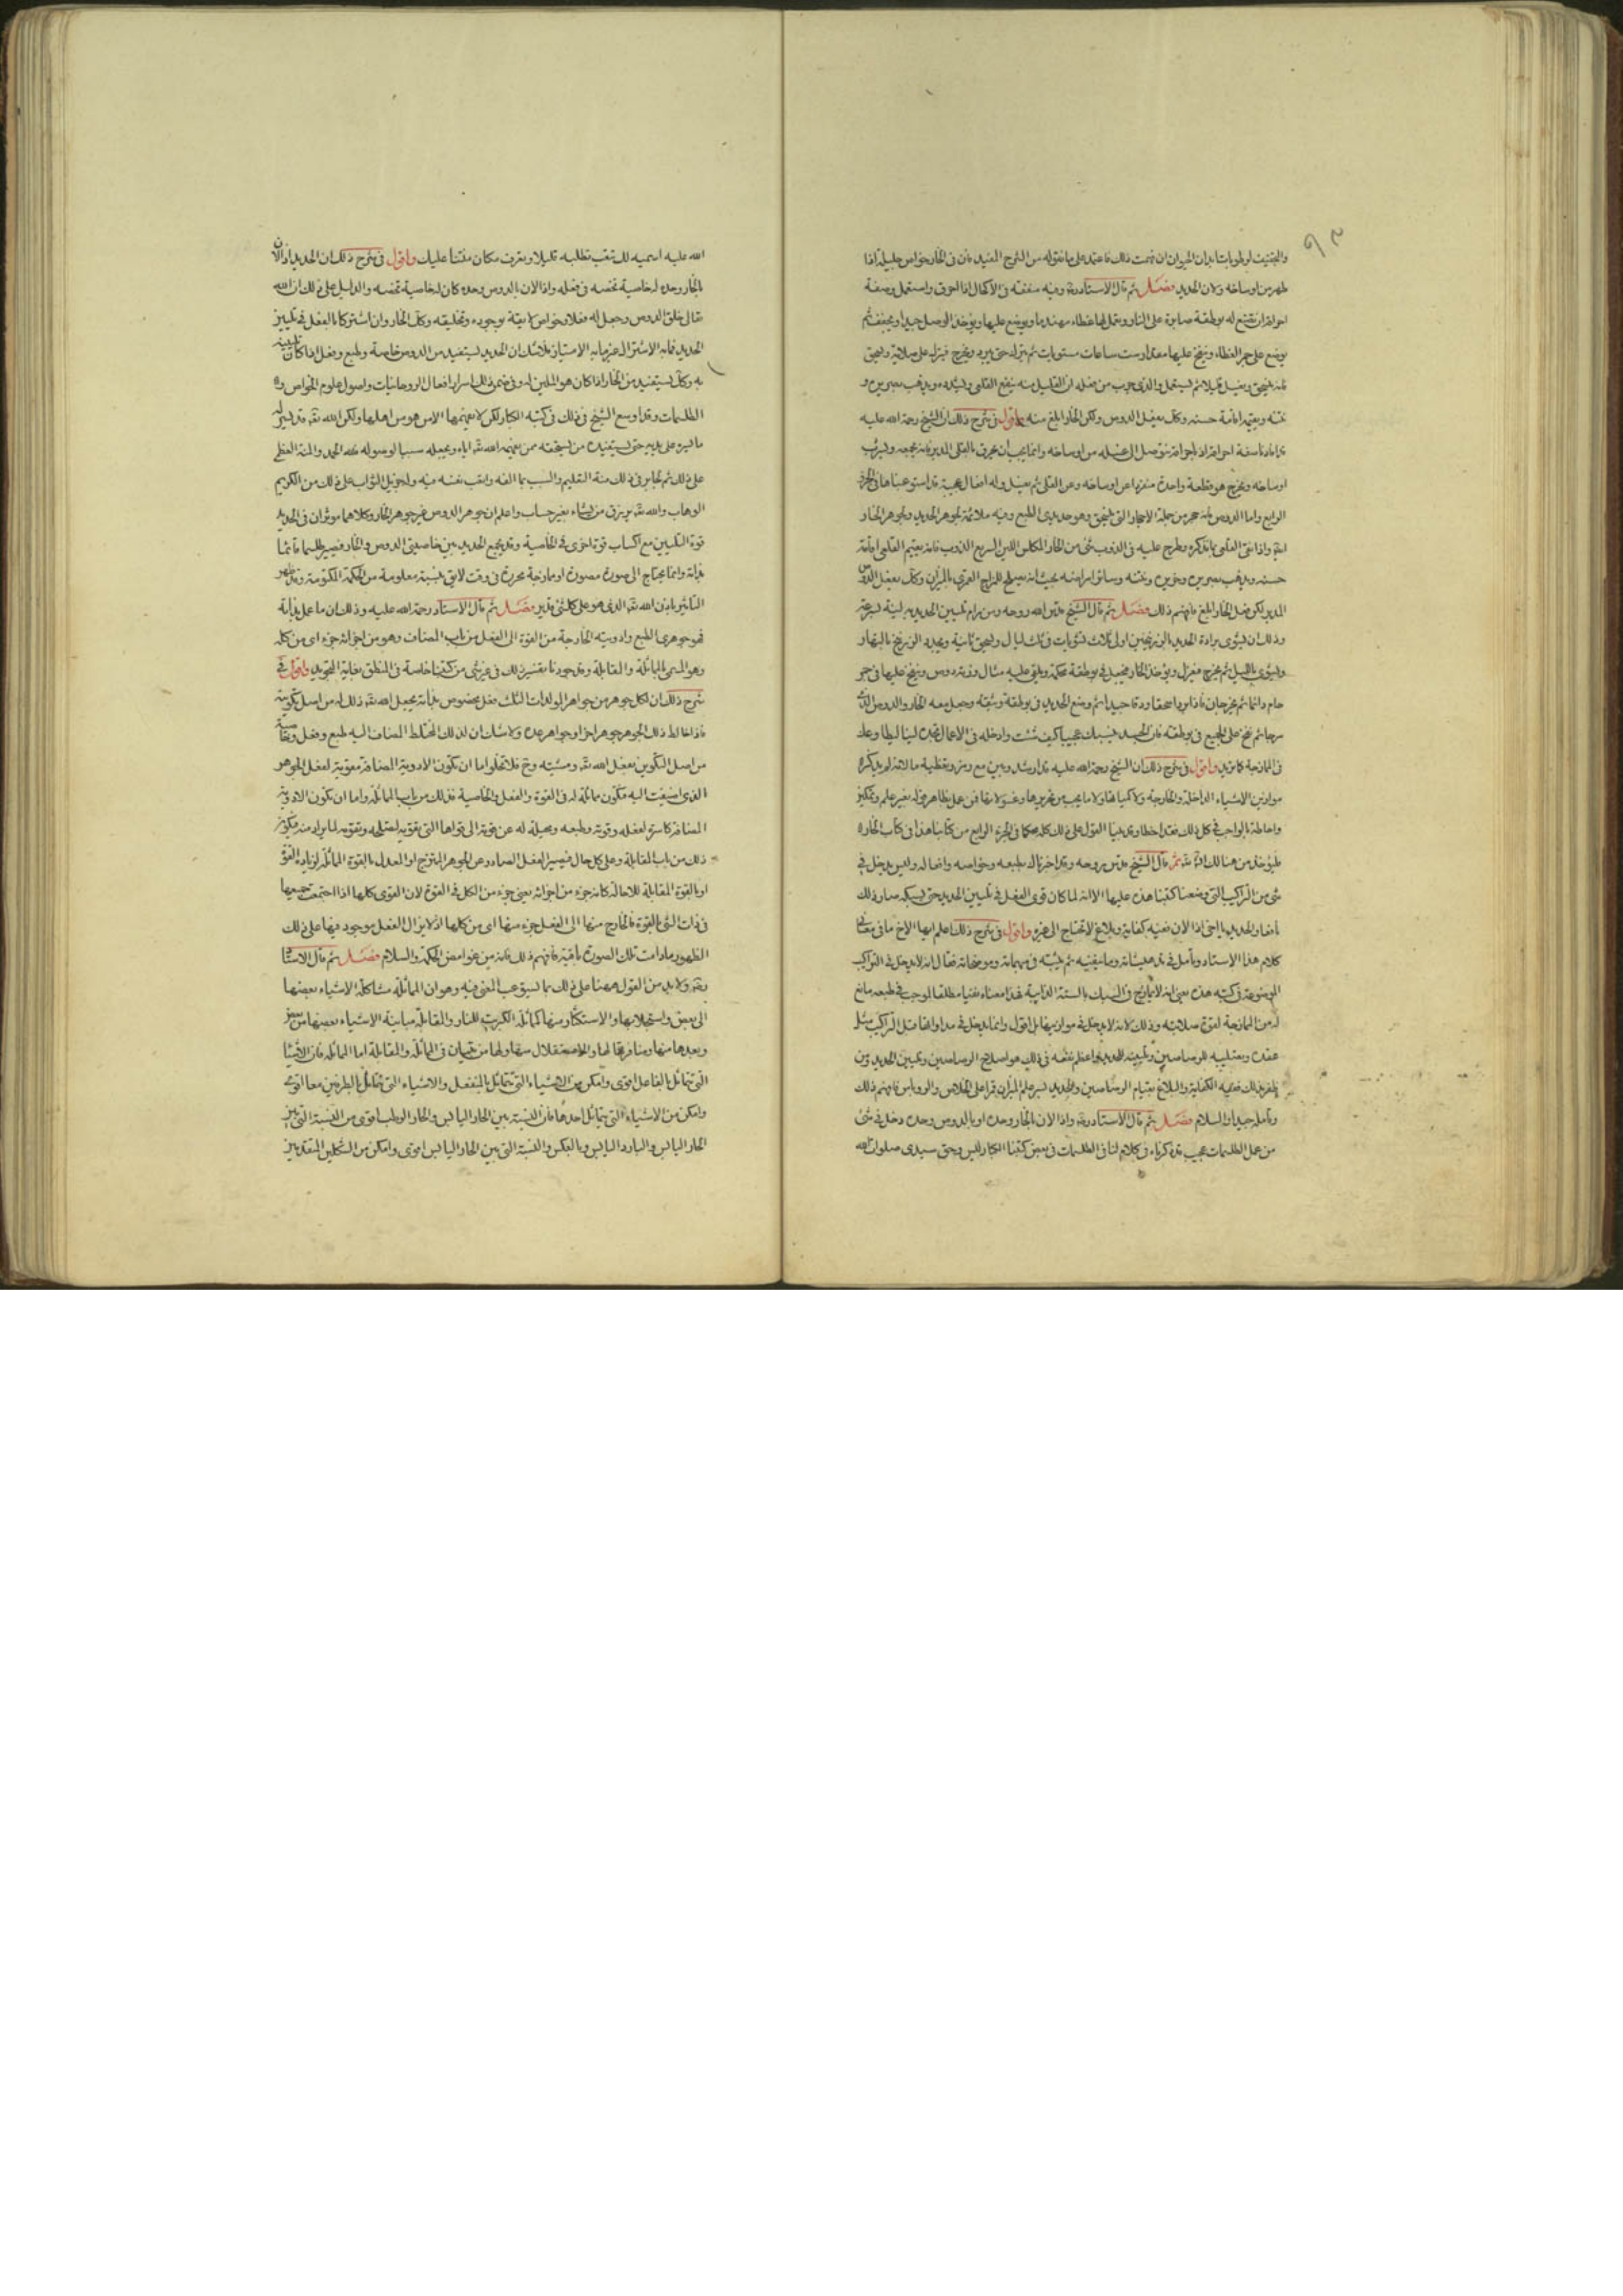 والتجفيف لرطوبات ابدان الحيوان ان فهمت ذلك فاعتمد على ما نقوله من الشرح المفيد فان في الخار خواص جليلة اذا
طهر من اوساخه ولان الحديد فصل ثم قال الاستاد وفيه منفعة في الاكحال اذا احرق واستعمل وصفة
احراقه ان تصنع له بوطقة صابرة على النار وتعمل لها غطاء مهندما ويوضع عليها ويؤخذ الوصل جيدا ويجفف ثم
يوضع على جمر الغطاء وينفخ عليها مقدار ست ساعات مستويات ثم يترك حتى يبرد ويخرج فيترك على صلاية ويسحق
فانه ينسحق ويغسل قليلا ثم يستعمل والذي جرب من فعله ان القليل منه ينفع القلعي ويشدده ويذهب بصريره و
نتنه ويقيمه اقامة حسنة وكذلك يفعل الدوص ولكن الخار ابلغ منه واقول في شرح ذلك ان الشيخ رحمة الله عليه
اوساخه ويخرج هو قطعة واحدة منفردا عن اوساخه وعن القلى ثم يغسل وله افعال عجيبة قد استوعبناها في الجزء
الرابع واما الدوص فانه حجر من جملة الاحجار التي تنسحق وهو حديدي الطبع وفيه ملائمة لجوهر الحديد ولجوهر الخار
ايضا واذا نقي القلعي بما نذكره وطرح عليه في الذوب شئ من الخار المكلس اللين السريع الذوب فانه يقيم القلعي اقامة
حسنة ويذهب بصريره وخريره ونتنه وسائر امراضه بحيث انه يصلح للمزاج القمري بالميزان وكذلك يفعل الدوص
المدبر لكن فعل الخار ابلغ فافهم ذلك فصل ثم قال الشيخ قدس الله روحه ومن رام تليين الحديد به لينة بسرعة
وذلك ان يشوى برادة الحديد بالزرنيخين اولى ثلاث تشويات في ثلث ليال ويسحق ثانية ويعيد الزرنيخ بالنهار
ويشوى بالليل ثم يخرج فيعزل ويؤخذ الخار فيجعل في بوطقة محكمة ويلقى عليه مثال وزنه دوص وينفخ عليها في جمر
حام دائما ثم يخرجان فاذا بردا سحقا ودقا جيدا ثم وضع الحديد في بوطقة وثيقة وجعل معه الخار والدوص اللذان
مزجا ثم نفخ على الجميع في بوطقة فان الحديد ينسبك عجيبا كيف شئت وادخله في الاعمال تجده لينا ليطا وعلك
في الممازجة كما تريد واقول في شرح ذلك ان الشيخ رحمة الله عليه قد ارشد وبين مع رمز وتغطية ما لانه لم يذكر
موازين الاشياء الداخلة والخارجة ولا كمياتها ولا ما يجب من تحريرها وغسولاتها فمن عمل ظاهر قوله بغير علم وتمكين
واحاطة بالواجب في كل ذلك فقد اخطا وقد بينا القول على ذلك كله محكما في الجزء الرابع من كتابنا هذا في كتاب الخار
فليؤخذ من هنالك ان شاء الله ثم قال الشيخ قدس روحه وقد اخبرناك بطبعه وخواصه وافعاله وليس يدخل في
شئ من التراكيب التي وضعنا كتبنا هذه عليها الا انه لما كان قوي الفعل في تليين الحديد حتى يسبكه صار ذلك
كلام هذا الاستاد وتأمل في
الموضوعة في كتبه هذه يعني انه لا يمازج في السبك بالستة الذايبة فهذا معناه نفيا مطلقا لوجب في طبعه مانع
له من الممازجة لقوة صلابته وذلك لانه لا يدخل في موازينها بل اقول وانما يدخل في مداواتها مثل التراكيب مثل
عقده وتصليبه للرصاصين وتليينه للحديد واعظم نفعه في ذلك هو اصلاح الرصاصين وتليين الحديد ومن
ظفر بذلك ففيه الكفاية والبلاغ بقيام الرصاصين والحديد بسر علم الميزان قمرا على الخلاص والروباص فافهم ذلك
وتأمله جيدا والسلام فصل ثم قال الاستاد واذا الان بالخار وحده او بالدوص وحده دخل في شئ
من عمل الطلسمات عجيب قد ذكرناه في كلام لنا في الطلسمات في بعض كتبنا الكبار لليس وحق سيدي صلوات الله
الله عليه اسميه لك تتعب بطلبه قليلا وتعرف مكان منتنا عليك واقول في شرح ذلك ان الحديد اذا الان
بالخار وحده له خاصية تخصه في فعله واذا الان بالدوص وحده كان له خاصية تخصه والدليل على ذلك ان الله
تعالى خلق الدوص وجعل له فعلا وخواص لايقة بوجوده وتخليقه وكذلك الخار وان اشتركا بالفعل في تليين
الحديد فما به الاشتراك غير ما به الامتياز فلا شك ان الحديد يستفيد من الدوص خاصية وطبع وفعل اذا كان تليينه
به وكذلك يستفيد من الخار اذا كان هو الملين له وفي ضمن ذلك اسرار افعال الروحانيات واصول علوم الخواص و
الطلسمات وقد اوسع الشيخ في ذلك في كتبه الكبار لكن لا يفهمها الا من هو من اهلها ولكن الله تعالى قد يسر له
ما يسره على يديه حتى يستفيده من يستحقه ممن يفهمه الله تعالى اياه ويجعله سببا لوصوله فلله الحمد والمنة العظمى
على ذلك ثم لجابر في ذلك منة التعليم والسبب بما الفه واتعب نفسه فيه وله جزيل الثواب على ذلك من الكريم
الوهاب والله تعالى يرزق من يشاء بغير حساب واعلم ان جوهر الدوص غير جوهر الخار وكلاهما موثران في الحديد
قوة التليين مع اكساب قوة اخرى في الخاصية وقد يجمع الحديد بين خاصيتي الدوص والخار فيصير طلسما قائما
بذاته وانما يحتاج الى صورة مصورة او ممازجة محررة في وقت لايق بنسبة معلومة من الحكمة المكتومة وقد ظهر
التاثير باذن الله تعالى الذي هو على كل شئ قدير فصل ثم قال الاستاد رحمة الله عليه وذلك ان ما عمل بذاته
فهو جوهري الطبع وادويته الخارجة من القوة الى الفعل من باب المضاف وهو من اجزائه جزء اي من كله
وهو المسمى المماثلة والمقابلة وقد جودنا تفسير ذلك في غير شئ من كتبنا خاصة في المنطق بغاية التجويد واقول في
شرح ذلك ان لكل جوهر من جواهر المولدات الثلث فعل مخصوص بذاته بجعل الله تعالى ذلك له من اصل تكوينه
فاذا خالط ذلك الجوهر جوهرا اخر او جواهر عدة ولا شك ان لذلك المختلط المضاف اليه طبع وفعل وخاصية
من اصل التكوين بفعل الله تعالى ومشيته وح فلا تخلوا اما ان تكون الادوية المضافة مقوية لفعل الجوهر
الذي اضيفت اليه فتكون مماثلة له في القوة والفعل والخاصية فذلك من باب المماثلة واما ان تكون الادوية
المضافة كاسرة لفعله وقوته وطبعه ومحيلة له عن قوته الى قواها التي تقويه لتصلحه وتقويه لما يراد منه فيكون
ذلك من باب المقابلة وعلى كل حال فيصير الفعل الصادر عن الجوهر الممتزج او المعدل بالقوة المماثلة لزيادة القوة
او بالقوة المقابلة للاحالة كانه جزء من اجزائه يعني جزء من الكل في القوة لان القوى كلها اذا اجتمعت جميعها
في ذات الشئ بالقوة فالخارج منها الى الفعل جزء منها اي من كلها اذ لا يزال الفعل موجود فيها على ذلك
الظهور ما دامت تلك الصورة باقية فافهم ذلك فانه من غوامض الحكمة والسلام فصل ثم قال الاستاد
ولا بد من القول ههنا على ذلك بما يسبق عب المعنى فيه وهو ان المماثلة مشاكلة الاشياء بعضها
الى بعض واستجلابها والاستكثار منها كمماثلة الكبريت للنار والمقابلة مباينة الاشياء بعضها من بعض
وبعدها منها ومنافرتها لها والاستقلال منها ولها من قسمان في المماثلة والمقابلة اما المماثلة فان الاشياء
التي تماثل بالفاعل اقوى وامكن من الاشياء التي تماثل بالمنفعل والاشياء التي تماثل بالطرفين معا اقوى
وامكن من الاشياء التي تماثل احدهما فان النسبة بين الحار اليابس والحار الرطب اقوى من النسبة التي بين
الحار اليابس والبارد اليابس وبالعكس والنسبة التي بين الحار اليابس اقوى وامكن من الشكلين المتقدمين